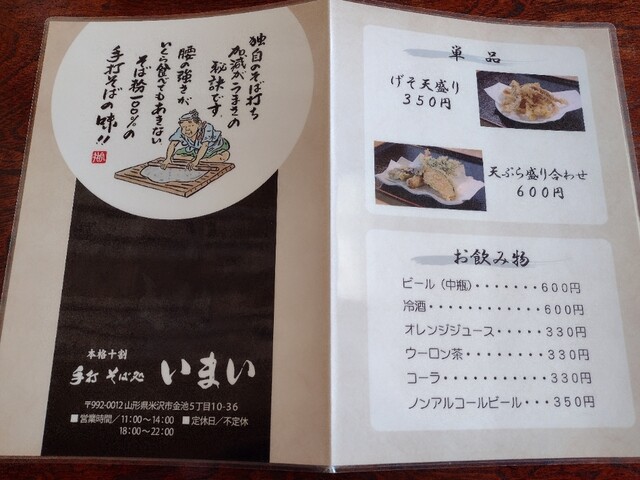 独自のそば打ち
加減がうまさの
秘訣です。
腰の強さが、
いくら食べてもあきない
そば粉一〇〇%の
手打そばの味!!
本格十割
手打 そば処 いまい
〒992-0012 山形県米沢市金池5丁目10-36
■営業時間/11:00～14:00 ■定休日/不定休
18:00～22:00
単品
げそ天盛り
350円
天ぷら盛り合わせ
600円
お飲み物
ビール（中瓶）・・・・・・・600円
冷酒・・・・・・・・・・・・600円
オレンジジュース・・・・・330円
ウーロン茶・・・・・・・・330円
コーラ・・・・・・・・・・330円
ノンアルコールビール・・・350円